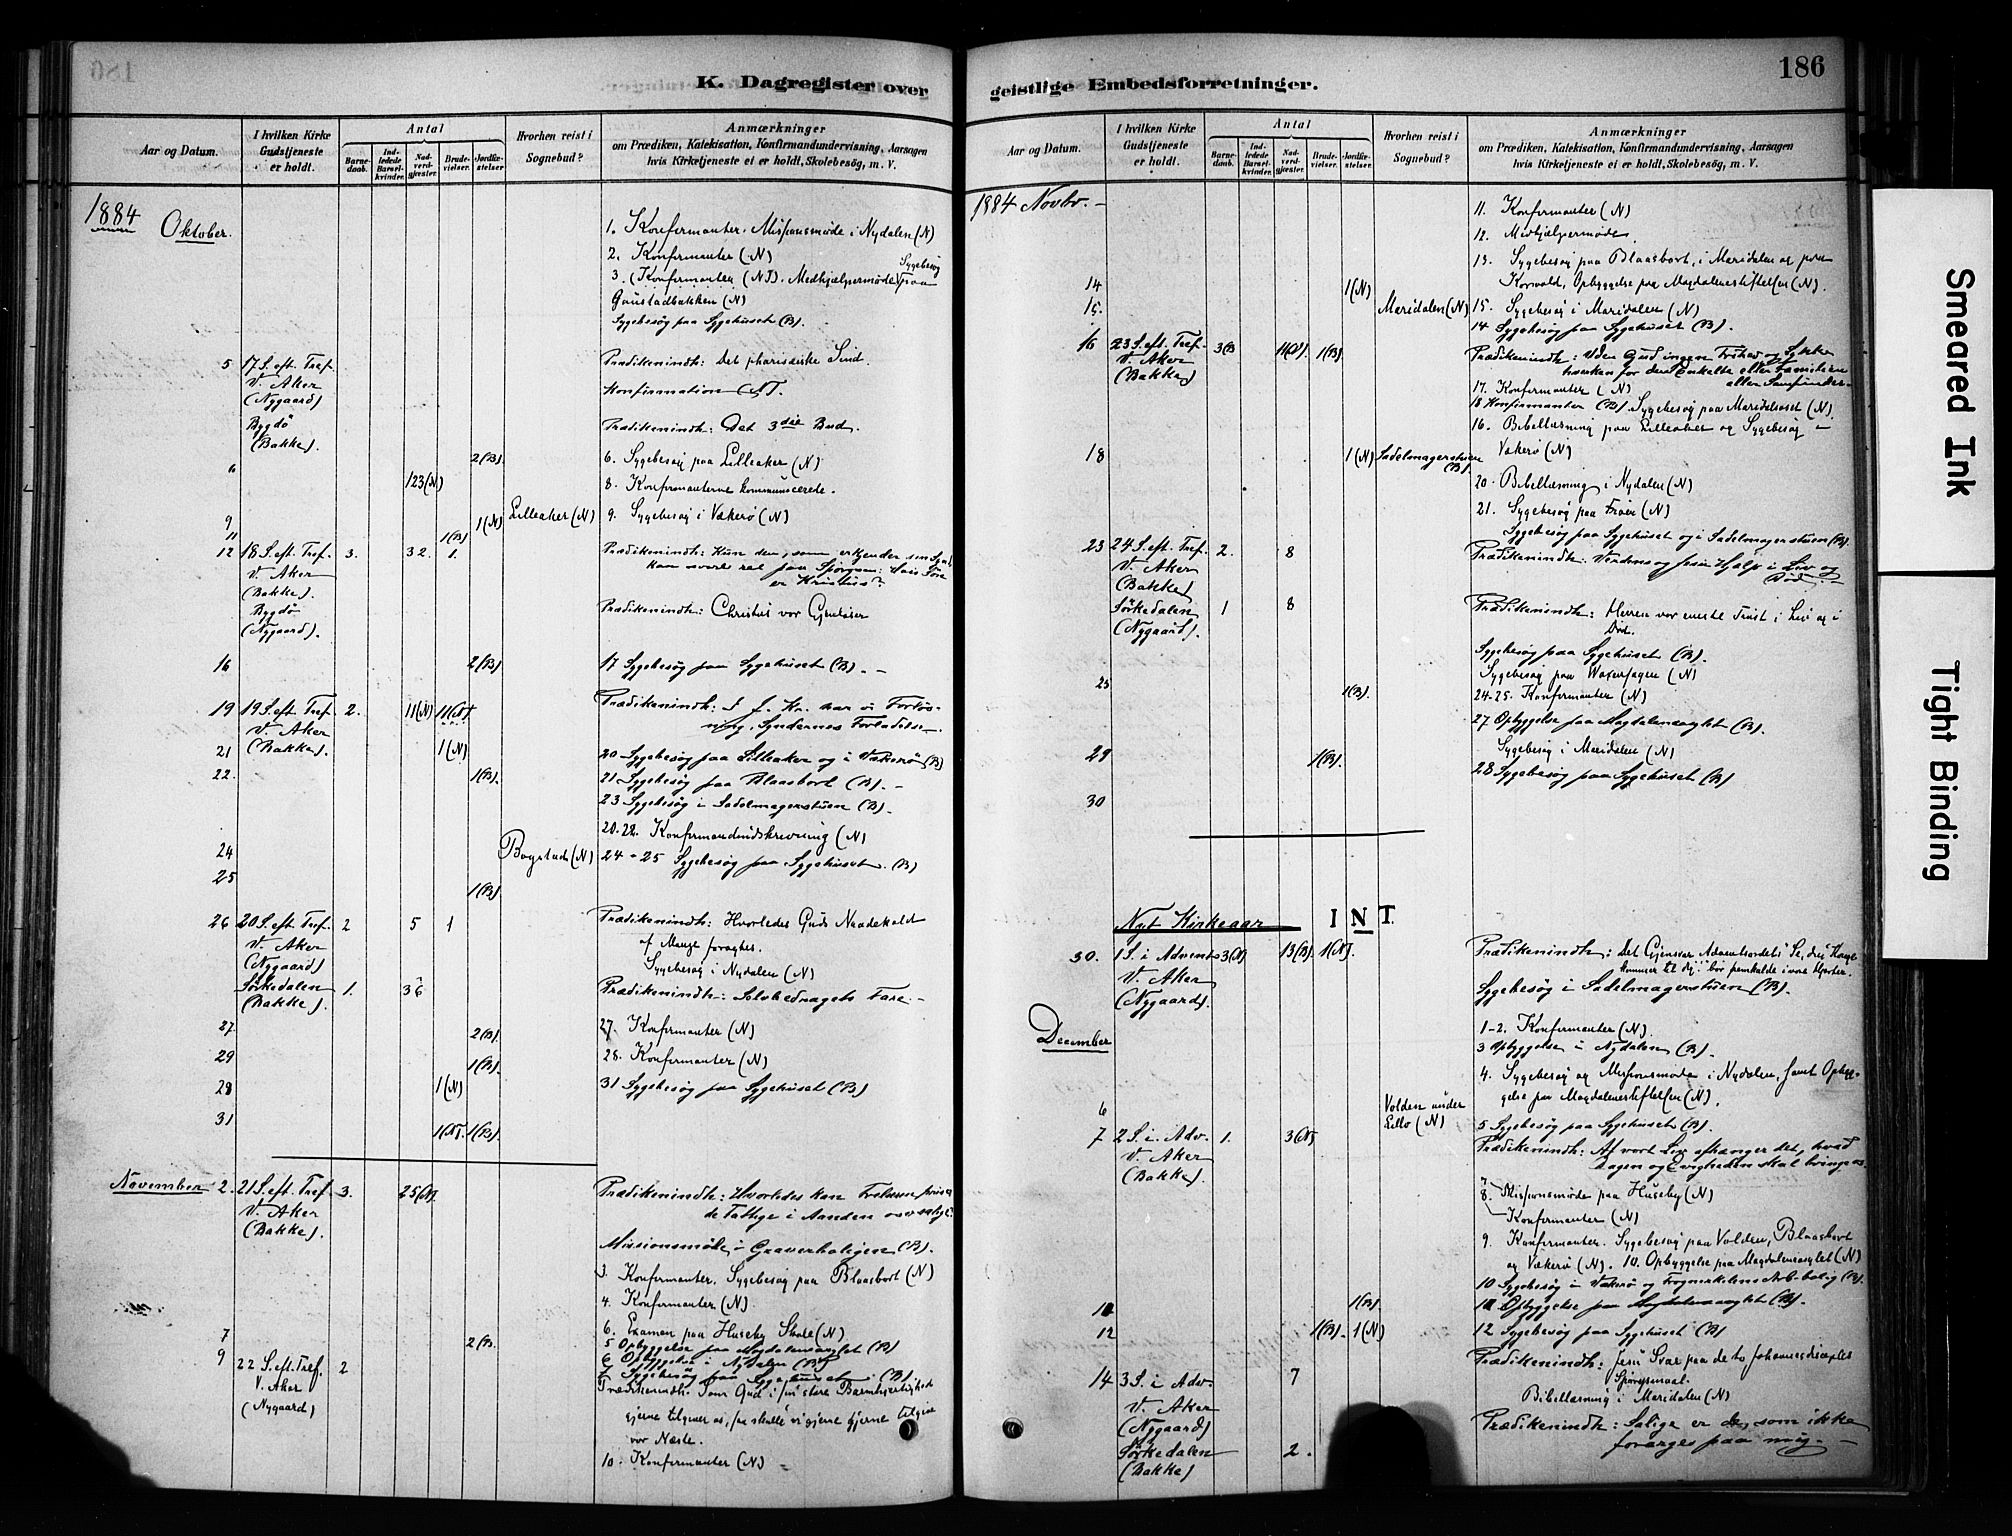 K. Dagregister over
Aar og Datum.
I hvilken Kirke Gudstjeneste er holdt.
Antal
Barnedaab.
Indledede Barselkvinder.
Nadverdgjæster.
Brudevielser.
Jordfæstelser.
Hvorhen reist i Sognebud?
Anmærkninger
om Prædiken, Katekisation, Konfirmandundervisning, Aarsagen
hvis Kirketjeneste ei er holdt, Skolebesög, m. V.
1884
Oktober.
1. Konfirmanter. Missionsmøde i Nydalen (N)
2. Konfirmanter (N)
3. (Konfirmanter (N)). Medhjælpermøde Sygebesøg paa
Gaustadbakken (N)
Sygebesøg paa Sygehuset (B).
5 17 S. eft. Tref. Prædikenindh: Det pharisæiske Sind.
V. Aker
(Nygaard) Konfirmation (N).
Bygdö Prædikenindh: Det 3die Bud.
(Bakke).
6 2(B). 6. Sygebesøg paa Lilleaker (N)
123(N) 8. Konfirmanterne kommunicerede.
9 1(N) Lilleaker (N) 9. Sygebesøg i Vækerø (N)
11 1(B)
12 18 S. eft. Tref. 3. 32. 1. Prædikenindh: Kun den, som erkjender sin Synd,
V. Aker kan svare ret paa Spørgsm:
(Bakke). er Kristus?
Bygdö Prædikenindh: Christus vor Gjenløser
(Nygaard).
16 2(B) 17 Sygebesøg paa Sygehuset (B).
19 19 S. eft. Tref. 2. 11(N) 11(N) Prædikenindh: I J. Kr. har vi Forløsning,
V. Aker Syndernes Forladelse.
(Bakke).
21 1(N) 20 Sygebesøg paa Lilleaker og i Vækerø (B)
22. 1(B). 21 Sygebesøg paa Blaasbort (B).
23 Sygebesøg i Sadelmagerstuen (B).
20. 22. Konfirmandindskrivning (N)
24 Bogstad (N) 24 - 25 Sygebesøg paa Sygehuset. (B)
25 1(B).
26 20 S. eft. Tref. 2 5 1 Prædikenindh: Hvorledes Guds Naadekald
V. Aker af Mange foragtes.
(Nygaard) Sygebesøg i Nydalen (N)
Sörkedalen 1. 36 Prædikenindh: Selvbedragets Fare.
(Bakke).
27 2(B). 27. Konfirmanter (N)
29 1(B). 28. Konfirmanter (N)
28 1(N) 31 Sygebesøg paa Sygehuset (B)
31 1(N). 1(B).
November 2. 21 S. eft. Tref. 3. 25(N). Prædikenindh: Hvorledes kan
V. Aker de Fattige i Aanden
(Bakke).
Missionsmøde i Graverboligen (B).
3. Konfirmanter. Sygebesøg paa Blaasbort (N)
4. Konfirmanter (N).
6. Examen paa Huseby Skole (N)
7 2(B. 5 Opbyggelse paa Magdalenasylet (B)
6 Opbyggelse i Nydalen (B)
7 Sygebesøg paa Sygehuset (B)
9 22 S. eft. Tref. 2 Prædikenindh. Som Gud i sin store Barmhjertighed
V. Aker gjerne tilgiver os, saa skulle vi gjerne tilgive
(Nygaard) vor Næste.
10. Konfirmanter (N)
geistlige Embedsforretninger.
186
Aar og Datum.
I hvilken Kirke Gudstjeneste er holdt.
Antal
Barnedaab.
Indledede Barselkvinder.
Nadverdgjæster.
Brudevielser.
Jordfæstelser.
Hvorhen reist i Sognebud?
Anmærkninger
om Prædiken, Katekisation, Konfirmandundervisning, Aarsagen
hvis Kirketjeneste ei er holdt, Skolebesög, m. V.
1884 Novbr.
11. Konfirmanter (N)
12. Medhjælpermøde.
13. Sygebesøg paa Blaasbort, i Maridalen og paa
14 1(N) Korvald, Opbyggelse paa Magdalenestiftelsen (N).
15. Maridalen (N) 15. Sygebesøg i Maridalen (N)
14 Sygebesøg paa Sygehuset (B).
16 23 S. eft. Tref. 3(B 1(B) Prædikenindh: Uden Gud ingen Frihed og Lykke
V. Aker hverken for den Enkelte eller Familien
(Bakke) eller Samfundet.
17. Konfirmanter (N)
18 Konfirmanter (B). Sygebesøg paa Maridalsveiet (N).
16. Bibellæsning paa Lilleaker og Sygebesøg i
18 1(N) Sadelmagerstuen (B). Vækerø (N)
20. Bibellæsning i Nydalen (N)
21. Sygebesøg paa Froen (N)
Sygebesøg paa Sygehuset og i Sadelmagerstuen (B).
23 24 S. eft. Tref. 2. 8 Prædikenindh: Verdens og Jesu Hjælp i Liv og
V. Aker Død.
(Bakke)
Sörkedalen 1 8 Prædikenindh: Herren vor eneste Trøst i Liv og i
(Nygaard). Død.
Sygebesøg paa Sygehuset (B).
Sygebesøg paa (N)
25 1(B). 24-25. Konfirmanter (N)
27 Opbyggelse paa Magdalenasylet (B).
Sygebesøg i Maridalen (N)
29 1(B). 28 Sygebesøg paa Sygehuset (B)
30
Nyt Kirkeaar I N T.
30. 1 S. i Advent 3(N) 13(B). 1(N). Prædikenindh: Det Gjensvar Adventsordets "Se, din Konge
V. Aker kommer til dig" bør fremkalde i vore Hjerter.
(Nygaard). Sygebesøg i Sadelmagerstuen (B).
December
1-2. Konfirmanter (N).
3 Opbyggelse i Nydalen (B).
4. Sygebesøg og Missionsmøde i Nydalen, samt Opbyggelse
paa Magdalenestiftelsen (N).
6 Volden under Lillo (N) 5 Sygebesøg paa Sygehuset (B).
7 2 S. i Adv. 1. 3(N) Prædikenindh: Af vort Liv afhænger det, hvad
V. Aker Dagen og Evigheden skal bringe os.
(Bakke).
7 8. Missionsmøde paa Huseby (N)
Konfirmanter (N)
9. Konfirmanter. Sygebesøg paa Volden, Blaasbort
og Vækerø (N). 10. Opbyggelse paa Magdalenasylet (N)
10 Sygebesøg i Vækerø og (B).
11 1(B). 11 Opbyggelse paa Magdalenasylet (B).
12 1(B). 1(N) 12 Sygebesøg paa Sygehuset (B)
Prædikenindh: Jesu Svar paa de to Johannesdisciples
14 3 S. i Adv. 7 Spørgsmaal.
V. Aker Bibellæsning i Maridalen (N)
(Nygaard) Prædikenindh: Salige er de, som ikke
Sörkedalen 2. forarges paa mig.
(Bakke)
Smeared Ink
Tight Binding